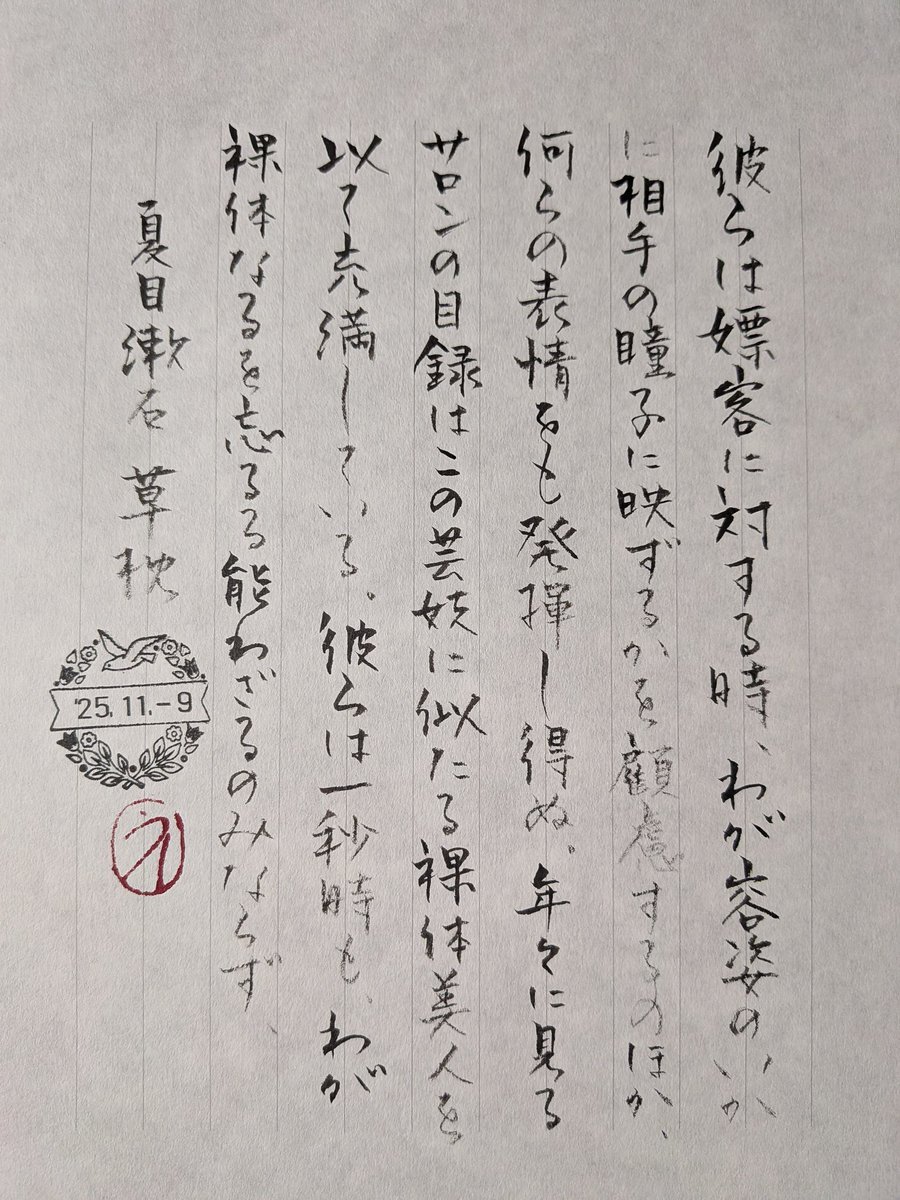 彼らは嫖客に対する時、わが容姿のいか
に相手の瞳子に映ずるかを顧慮するのほか、
何らの表情をも発揮し得ぬ。年々に見る
サロンの目録はこの芸妓に似たる裸体美人を
以て充満している。彼らは一秒時も、わが
裸体なるを忘るる能わざるのみならず、
夏目漱石 草枕
'25.11.-9